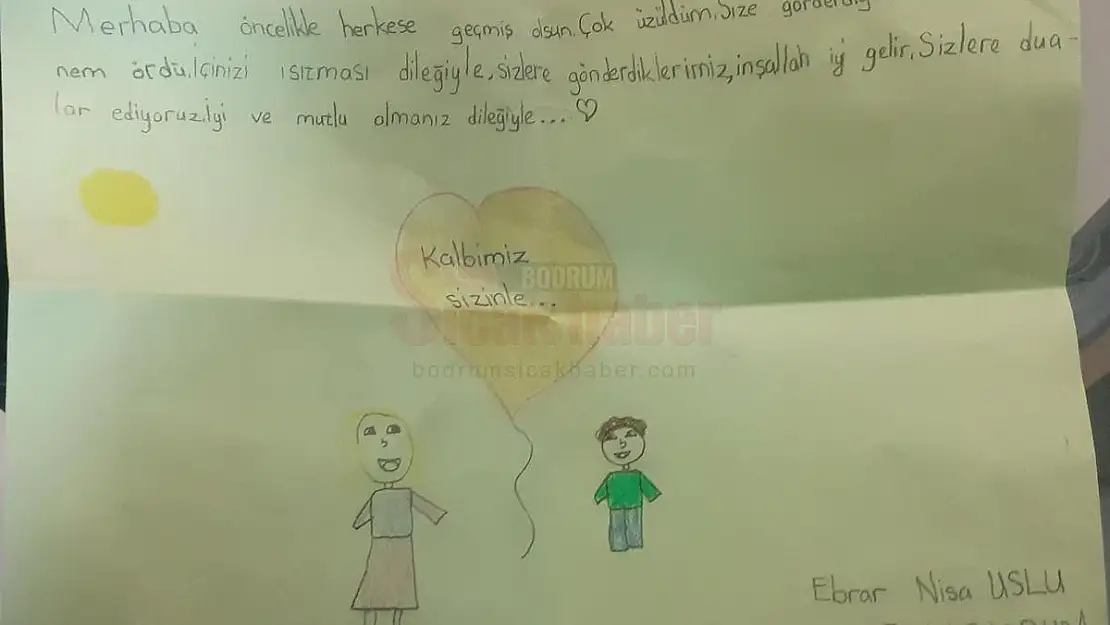 Merhaba öncelikle herkese geçmiş olsun.Çok üzüldüm.Size
nem ördü.İçinizi ısıtması dileğiyle,sizlere gönderdiklerimiz,inşallah iyi gelir.Sizlere dua-
lar ediyoruz.İyi ve mutlu olmanız dileğiyle...♡
Kalbimiz
sizinle...
BODRUM
Sıcak haber
bodrumsicakhaber.com
Ebrar Nisa USLU